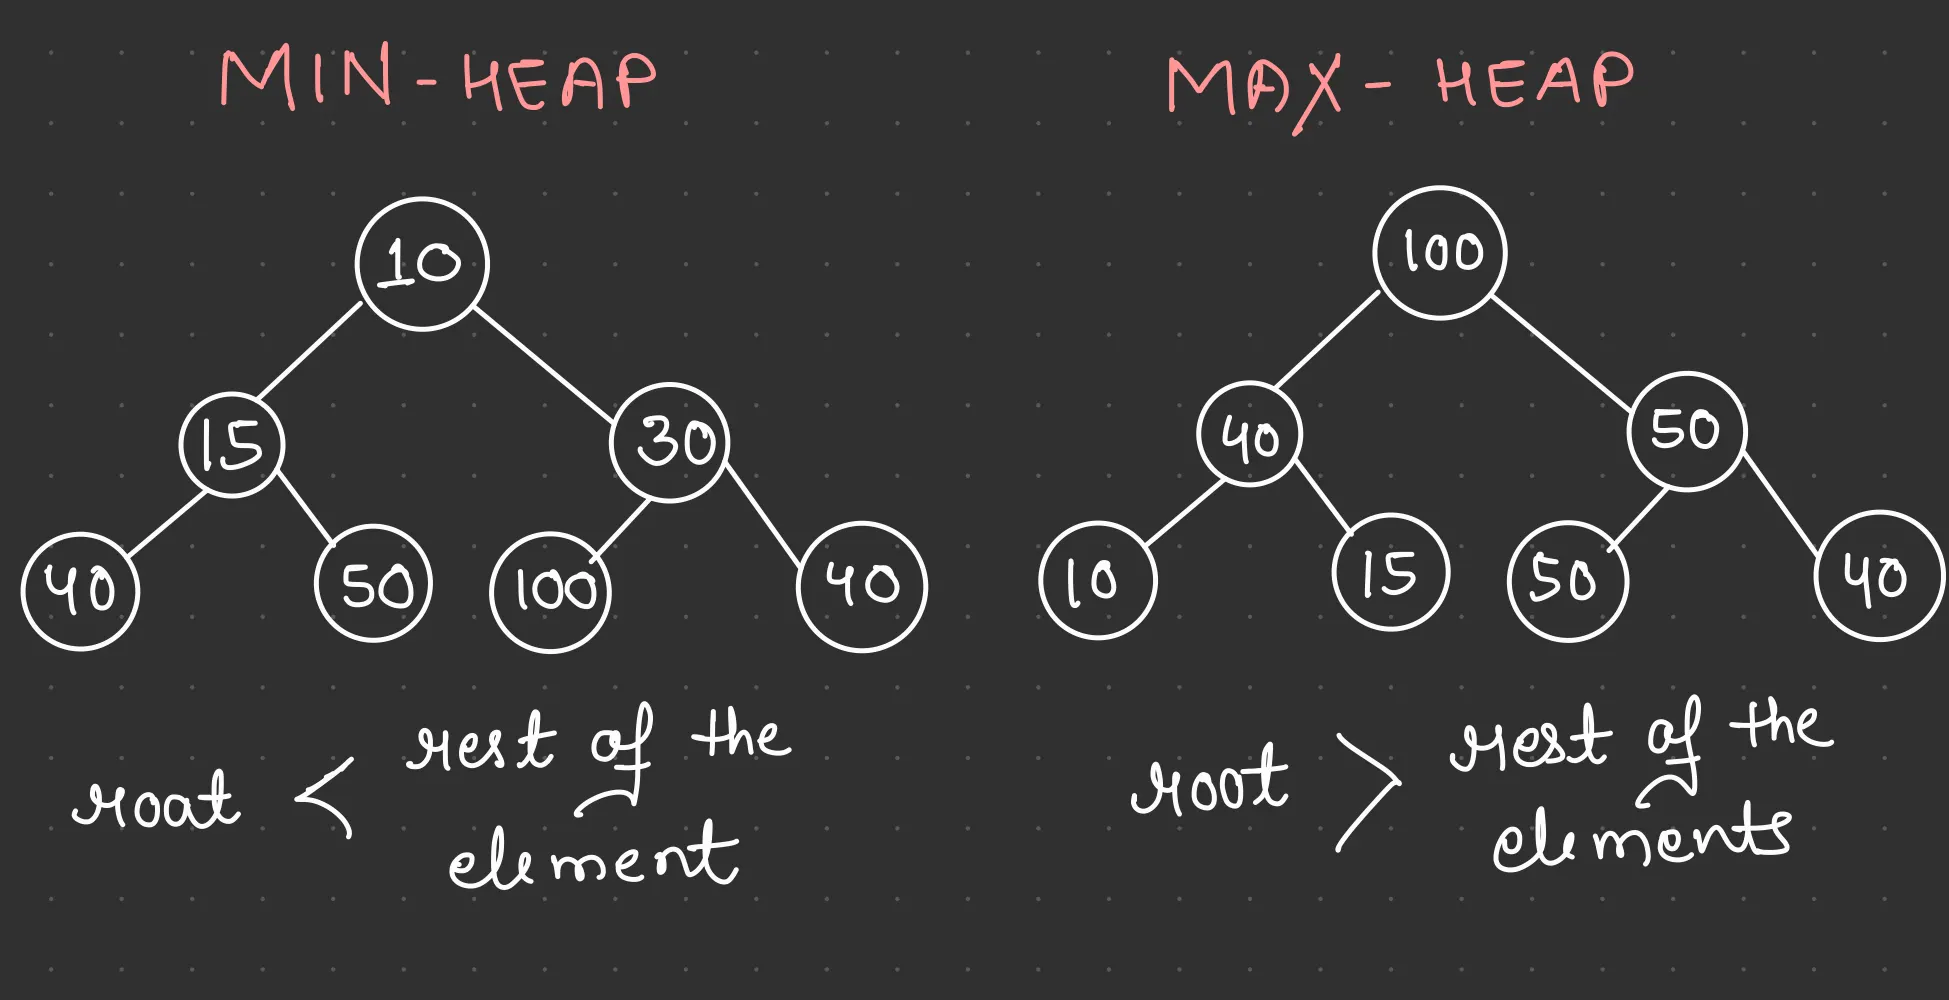 MIN-HEAP
10
15 30
40 50 100 40
roat < rest of the
element
MAX-HEAP
100
40 50
10 15 50 40
root > rest of the
elements